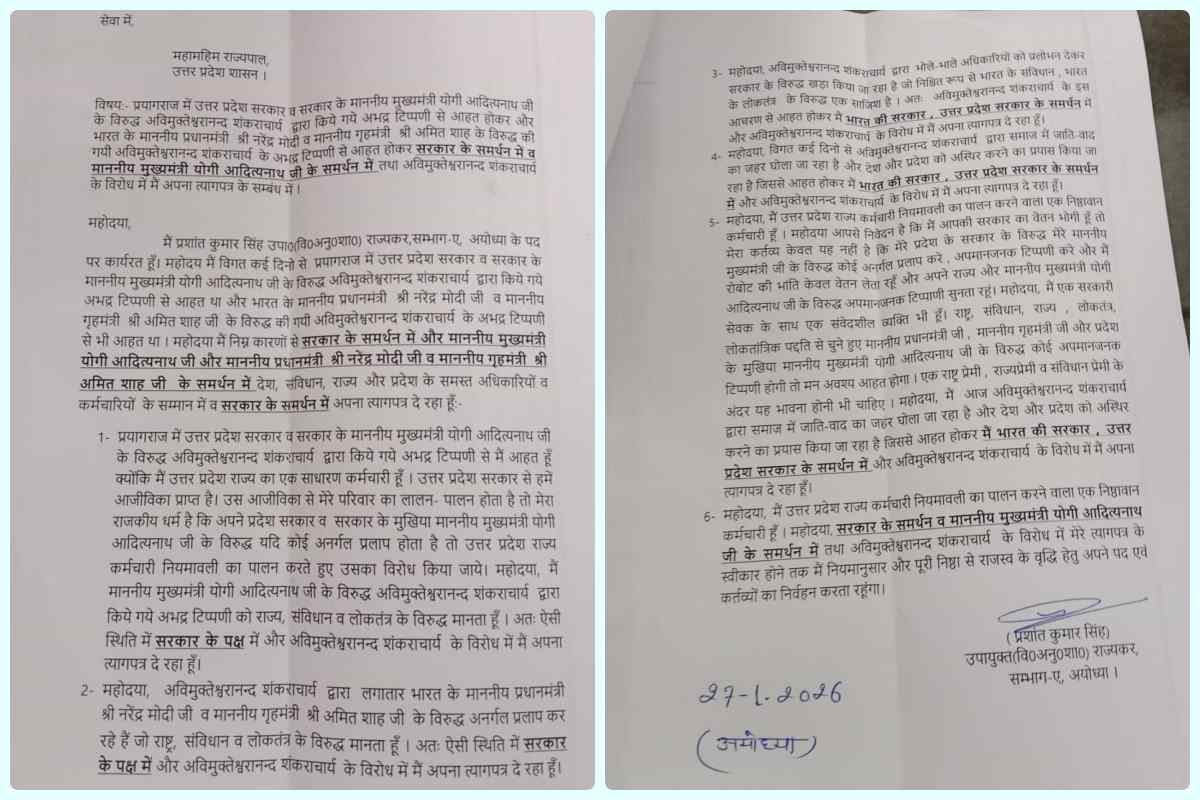 सेवा में,
महामहिम राज्यपाल,
उत्तर प्रदेश शासन ।
विषय:- प्रयागराज में उत्तर प्रदेश सरकार व सरकार के माननीय मुख्यमंत्री योगी आदित्यनाथ जी
के विरुद्ध अविमुक्तेश्वरानन्द शंकराचार्य द्वारा किये गये अभद्र टिप्पणी से आहत होकर और
भारत के माननीय प्रधानमंत्री श्री नरेंद्र मोदी व माननीय गृहमंत्री श्री अमित शाह के विरुद्ध की
गयी अविमुक्तेश्वरानन्द शंकराचार्य के अभद्र टिप्पणी से आहत होकर सरकार के समर्थन में व
माननीय मुख्यमंत्री योगी आदित्यनाथ जी के समर्थन में तथा अविमुक्तेश्वरानन्द शंकराचार्य
के विरोध में मैं अपना त्यागपत्र के सम्बंध में।
महोदया,
मैं प्रशांत कुमार सिंह उपा0(वि0अनु0शा0) राज्यकर,सम्भाग-ए, अयोध्या के पद
पर कार्यरत हूँ। महोदय मैं विगत कई दिनो से प्रयागराज में उत्तर प्रदेश सरकार व सरकार के
माननीय मुख्यमंत्री योगी आदित्यनाथ जी के विरुद्ध अविमुक्तेश्वरानन्द शंकराचार्य द्वारा किये गये
अभद्र टिप्पणी से आहत था और भारत के माननीय प्रधानमंत्री श्री नरेंद्र मोदी जी व माननीय
गृहमंत्री श्री अमित शाह जी के विरुद्ध की गयी अविमुक्तेश्वरानन्द शंकराचार्य के अभद्र टिप्पणी
से भी आहत था । महोदया मैं निम्न कारणों से सरकार के समर्थन में और माननीय मुख्यमंत्री
योगी आदित्यनाथ जी और माननीय प्रधानमंत्री श्री नरेंद्र मोदी जी व माननीय गृहमंत्री श्री
अमित शाह जी के समर्थन में देश, संविधान, राज्य और प्रदेश के समस्त अधिकारियों व
कर्मचारियों के सम्मान में व सरकार के समर्थन में अपना त्यागपत्र दे रहा हूँ:-
1- प्रयागराज में उत्तर प्रदेश सरकार व सरकार के माननीय मुख्यमंत्री योगी आदित्यनाथ जी
के विरुद्ध अविमुक्तेश्वरानन्द शंकराचार्य द्वारा किये गये अभद्र टिप्पणी से मैं आहत हूँ
क्योंकि मैं उत्तर प्रदेश राज्य का एक साधारण कर्मचारी हूँ । उत्तर प्रदेश सरकार से हमें
आजीविका प्राप्त है। उस आजीविका से मेरे परिवार का लालन- पालन होता है तो मेरा
राजकीय धर्म है कि अपने प्रदेश सरकार व सरकार के मुखिया माननीय मुख्यमंत्री योगी
आदित्यनाथ जी के विरुद्ध यदि कोई अनर्गल प्रलाप होता है तो उत्तर प्रदेश राज्य
कर्मचारी नियमावली का पालन करते हुए उसका विरोध किया जाये। महोदया, मैं
माननीय मुख्यमंत्री योगी आदित्यनाथ जी के विरुद्ध अविमुक्तेश्वरानन्द शंकराचार्य द्वारा
किये गये अभद्र टिप्पणी को राज्य, संविधान व लोकतंत्र के विरुद्ध मानता हूँ । अतः ऐसी
स्थिति में सरकार के पक्ष में और अविमुक्तेश्वरानन्द शंकराचार्य के विरोध में मैं अपना
त्यागपत्र दे रहा हूँ।
2- महोदया, अविमुक्तेश्वरानन्द शंकराचार्य द्वारा लगातार भारत के माननीय प्रधानमंत्री
श्री नरेंद्र मोदी जी व माननीय गृहमंत्री श्री अमित शाह जी के विरुद्ध अनर्गल प्रलाप कर
रहे हैं जो राष्ट्र, संविधान व लोकतंत्र के विरुद्ध मानता हूँ । अतः ऐसी स्थिति में सरकार
के पक्ष में और अविमुक्तेश्वरानन्द शंकराचार्य के विरोध में मैं अपना त्यागपत्र दे रहा हूँ।
3- महोदया, अविमुक्तेश्वरानन्द शंकराचार्य द्वारा भोले-भाले अधिकारियों को प्रलोभन देकर
सरकार के विरुद्ध खड़ा किया जा रहा है जो निश्चित रूप से भारत के संविधान , भारत
के लोकतंत्र के विरुद्ध एक साजिश है । अतः अविमुक्तेश्वरानन्द शंकराचार्य के इस
आचरण से आहत होकर में भारत की सरकार , उत्तर प्रदेश सरकार के समर्थन में
और अविमुक्तेश्वरानन्द शंकराचार्य के विरोध में मैं अपना त्यागपत्र दे रहा हूँ।
4- महोदया, विगत कई दिनो से अविमुक्तेश्वरानन्द शंकराचार्य द्वारा समाज में जाति-वाद
का जहर घोला जा रहा है और देश और प्रदेश को अस्थिर करने का प्रयास किया जा
रहा है जिससे आहत होकर में भारत की सरकार , उत्तर प्रदेश सरकार के समर्थन
में और अविमुक्तेश्वरानन्द शंकराचार्य के विरोध में मैं अपना त्यागपत्र दे रहा हूँ।
5- महोदया, मैं उत्तर प्रदेश राज्य कर्मचारी नियमावली का पालन करने वाला एक निष्ठावान
कर्मचारी हूँ । महोदया आपसे निवेदन है कि मैं आपकी सरकार का वेतन भोगी हूँ तो
मेरा कर्तव्य केवल यह नहीं है कि मेरे प्रदेश के सरकार के विरुद्ध मेरे माननीय
मुख्यमंत्री जी के विरुद्ध कोई अनर्गल प्रलाप करे , अपमानजनक टिप्पणी करे और मैं
रोबोट की भांति केवल वेतन लेता रहूँ और अपने राज्य और माननीय मुख्यमंत्री योगी
आदित्यनाथ जी के विरुद्ध अपमानजनक टिप्पाणी सुनता रहूं। महोदया, मैं एक सरकारी
सेवक के साथ एक संवेदशील व्यक्ति भी हूँ। राष्ट्र, संविधान, राज्य , लोकतंत्र,
लोकतांत्रिक पद्दति से चुने हुए माननीय प्रधानमंत्री जी , माननीय गृहमंत्री जी और प्रदेश
के मुखिया माननीय मुख्यमंत्री योगी आदित्यनाथ जी के विरुद्ध कोई अपमानजनक
टिप्पणी होगी तो मन अवश्य आहत होगा । एक राष्ट्र प्रेमी , राज्यप्रेमी व संविधान प्रेमी के
अंदर यह भावना होनी भी चाहिए । महोदया, मैं आज अविमुक्तेश्वरानन्द शंकराचार्य
द्वारा समाज में जाति-वाद का जहर घोला जा रहा है और देश और प्रदेश को अस्थिर
करने का प्रयास किया जा रहा है जिससे आहत होकर मैं भारत की सरकार , उत्तर
प्रदेश सरकार के समर्थन में और अविमुक्तेश्वरानन्द शंकराचार्य के विरोध में मैं अपना
त्यागपत्र दे रहा हूँ।
6- महोदया, मैं उत्तर प्रदेश राज्य कर्मचारी नियमावली का पालन करने वाला एक निष्ठावान
कर्मचारी हूँ । महोदया, सरकार के समर्थन व माननीय मुख्यमंत्री योगी आदित्यनाथ
जी के समर्थन में तथा अविमुक्तेश्वरानन्द शंकराचार्य के विरोध में मेरे त्यागपत्र के
स्वीकार होने तक मैं नियमानुसार और पूरी निष्ठा से राजस्व के वृद्धि हेतु अपने पद एवं
कर्तव्यों का निर्वहन करता रहूंगा।
( प्रशांत कुमार सिंह)
उपायुक्त(वि0अनु0शा0) राज्यकर,
सम्भाग-ए, अयोध्या ।
27-1.2026
(अयोध्या)